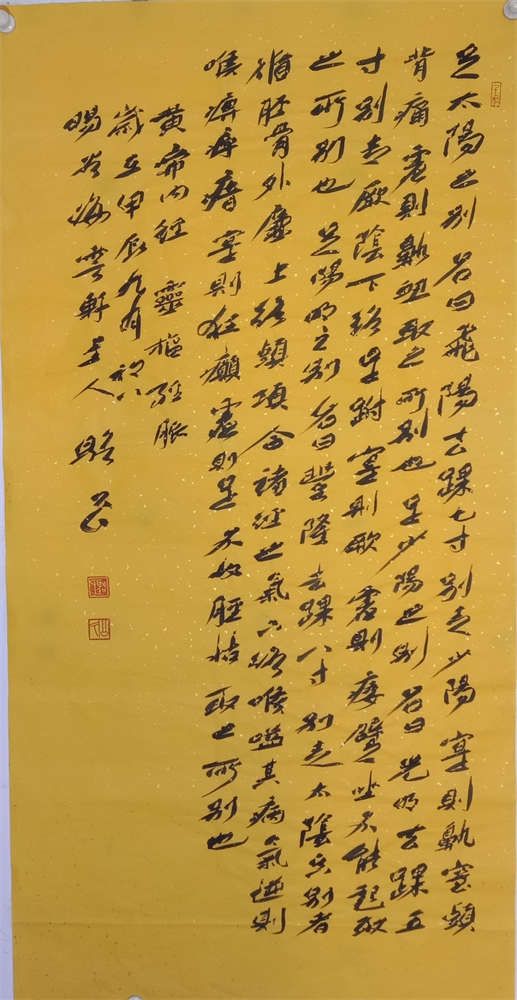 足太陽之别名曰飛陽去踝七寸别走少陽實則鼽窒頭
背痛虛則鼽衄取之所别也足少陽之别名曰光明去踝五
寸别走厥陰下絡足跗實則厥虛則痿躄坐不能起取
之所别也足陽明之别名曰豐隆去踝八寸别走太陰其别者
循脛骨外廉上絡頭項合諸經之氣下絡喉嗌其病氣逆則
喉痹瘁瘖實則狂癲虛則足不收脛枯取之所别也
黄帝内經靈樞經脈
歲在甲辰九月初八
暘谷海雲軒主人